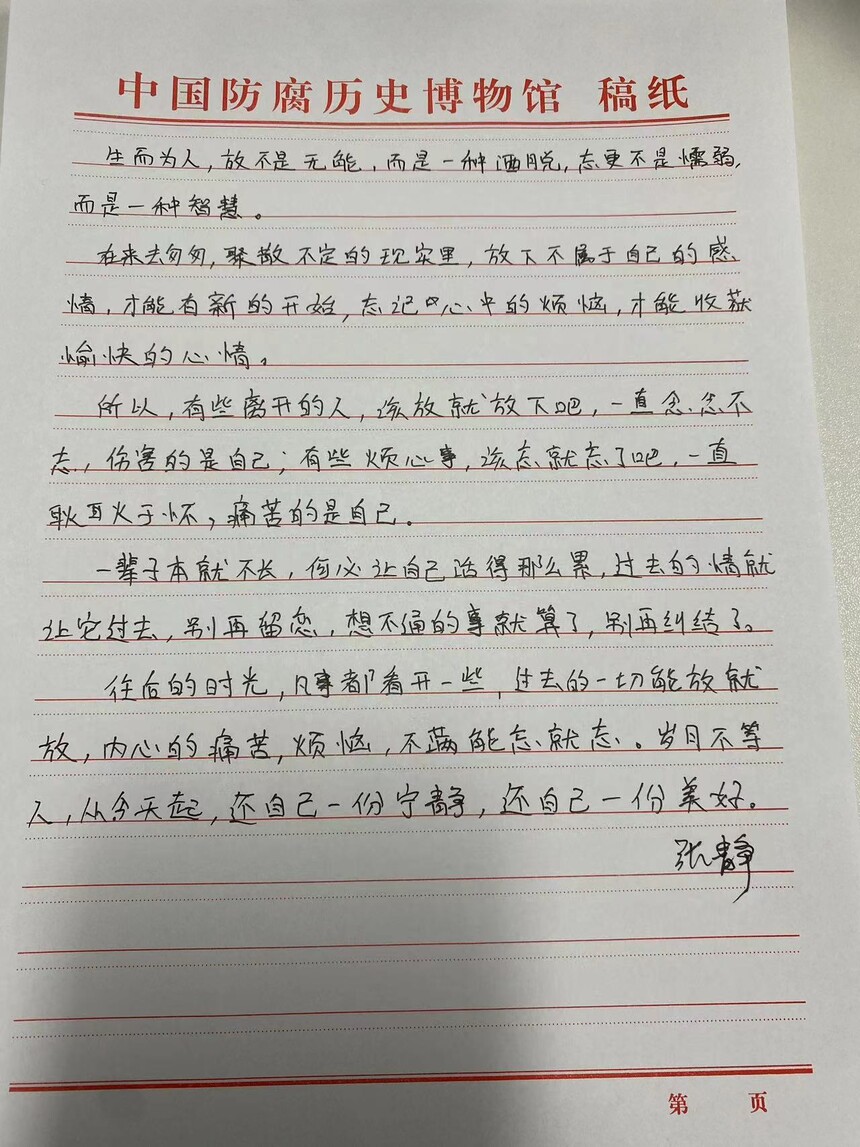 中国防腐历史博物馆 稿纸
生而为人，放不是无能，而是一种洒脱，忘更不是懦弱，
而是一种智慧。
在来去匆匆，聚散不定的现实里，放下不属于自己的感
情，才能有新的开始，忘记心中的烦恼，才能收获
愉快的心情。
所以，有些离开的人，该放就放下吧，一直念念不
忘，伤害的是自己；有些烦心事，该忘就忘了吧，一直
耿耳火于怀，痛苦的是自己。
一辈子本就不长，何必让自己活得那么累，过去的情就
让它过去，别再留恋，想不通的事就算了，别再纠结了。
往后的时光，凡事都看开一些，过去的一切能放就
放，内心的痛苦，烦恼，不满能忘就忘。岁月不等
人，从今天起，还自己一份宁静，还自己一份美好。
张静
第 页